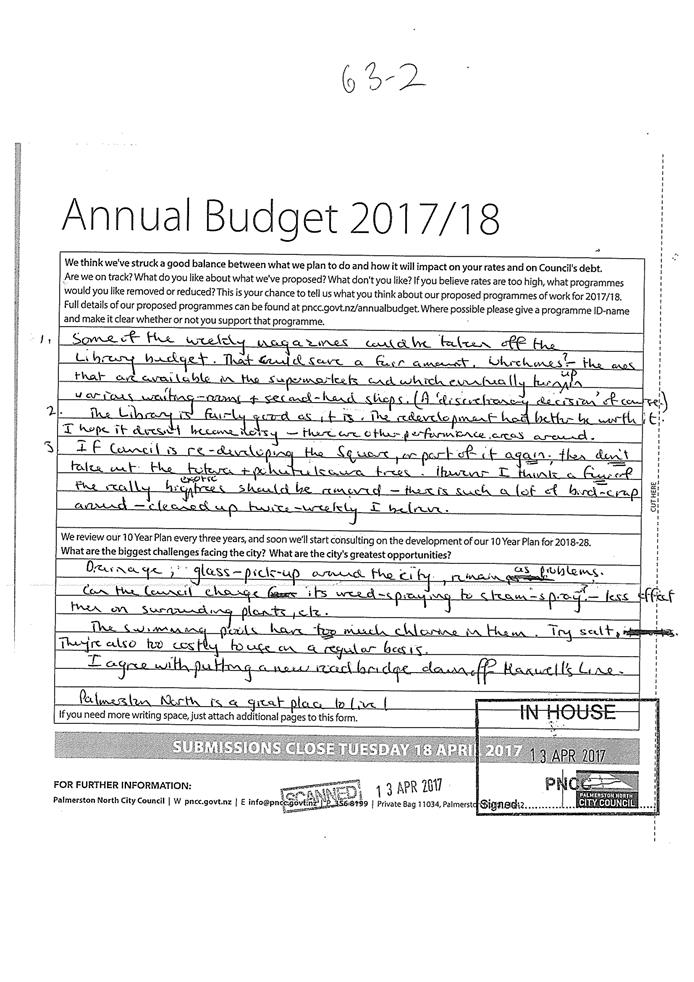 63-2
Annual Budget 2017/18
We think we've struck a good balance between what we plan to do and how it will impact on your rates and on Council's debt.
Are we on track? What do you like about what we've proposed? What don't you like? If you believe rates are too high, what programmes
would you like removed or reduced? This is your chance to tell us what you think about our proposed programmes of work for 2017/18.
Full details of our proposed programmes can be found at pncc.govt.nz/annualbudget. Where possible please give a programme ID-name
and make it clear whether or not you support that programme.
1. Some of the weekly magazines could be taken off the
Library budget. That could save a fair amount. Which ones? - the ones
that are available in the supermarkets and which eventually turn up in
various waiting-rooms + second-hand shops. (A 'discretionary decision' of course)
2. The Library is fairly good as it is. The redevelopment had better be worth it.
I hope it doesn't become noisy - there are other performance areas around.
3 If Council is re-developing the Square, or part of it again, then don't
take out the totara + pohutukawa trees. However I think a few of
the really big exotic trees should be removed - there is such a lot of bird-crap
around - cleaned up twice-weekly I believe.
We review our 10 Year Plan every three years, and soon we'll start consulting on the development of our 10 Year Plan for 2018-28.
What are the biggest challenges facing the city? What are the city's greatest opportunities?
Drainage; glass-pick-up around the city, remain as problems.
Can the Council change its weed-spraying to steam-spray? - less effect
then on surrounding plants, etc.
The swimming pools have too much chlorine in them. Try salt,
They're also too costly to use on a regular basis.
I agree with putting a new road bridge down off Maxwell's Line.
Palmerston North is a great place to live!
If you need more writing space, just attach additional pages to this form.
CUT HERE
IN HOUSE
SUBMISSIONS CLOSE TUESDAY 18 APRIL 2017
13 APR 2017
PNCC
PALMERSTON NORTH
CITY COUNCIL
Signed
FOR FURTHER INFORMATION:
SCANNED
13 APR 2017
Palmerston North City Council | W pncc.govt.nz | E info@pncc.govt.nz | P 356 8199 | Private Bag 11034, Palmerston